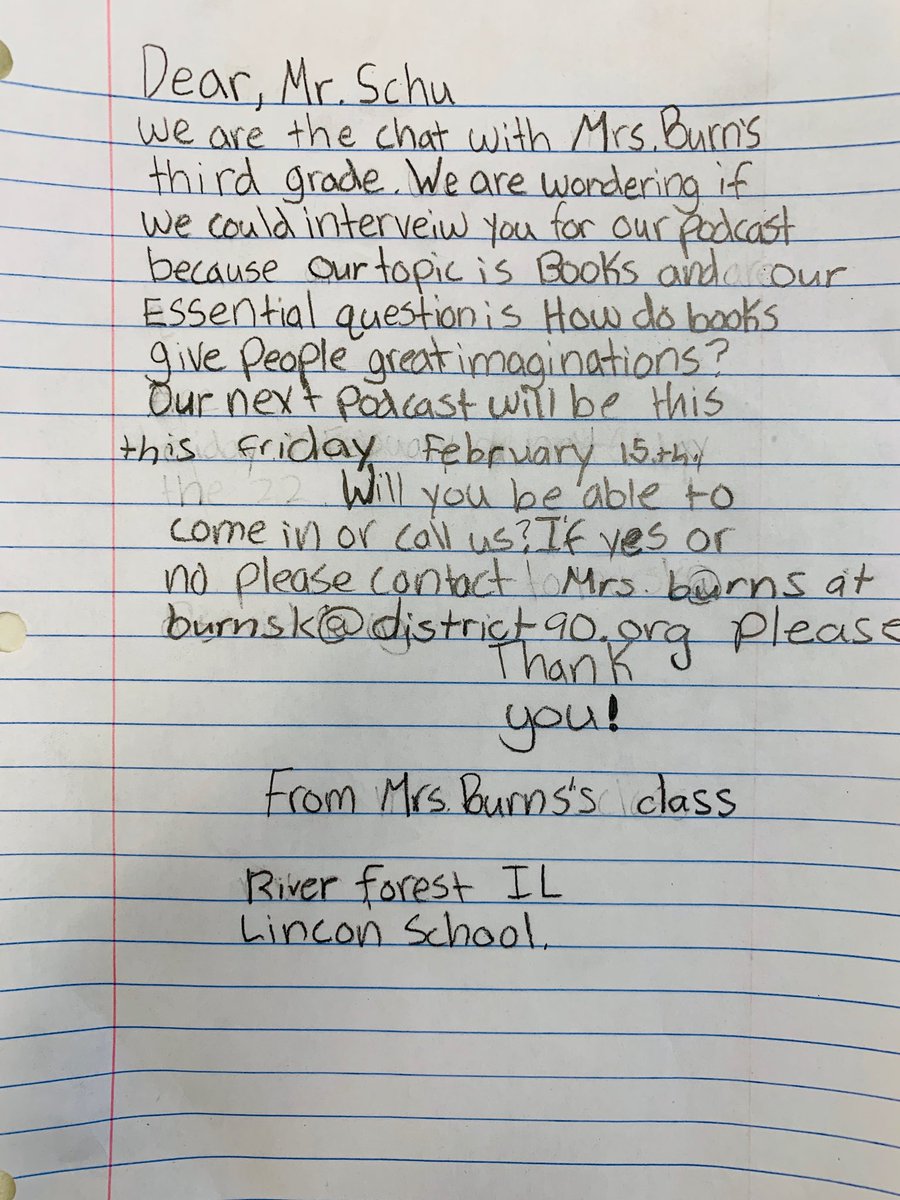 Dear, Mr. Schu
we are the chat with Mrs. Burn's
third grade. We are wondering if
we could interveiw you for our podcast
because our topic is Books and our
Essential question is How do books
give people great imaginations?
Our next podcast will be this
this friday February 15.th.
the 22 Will you be able to
come in or call us? If yes or
no please contact Mrs. burns at
burnsk@district90.org please
Thank
you!
From Mrs. Burns's class
River forest IL
Lincon School.